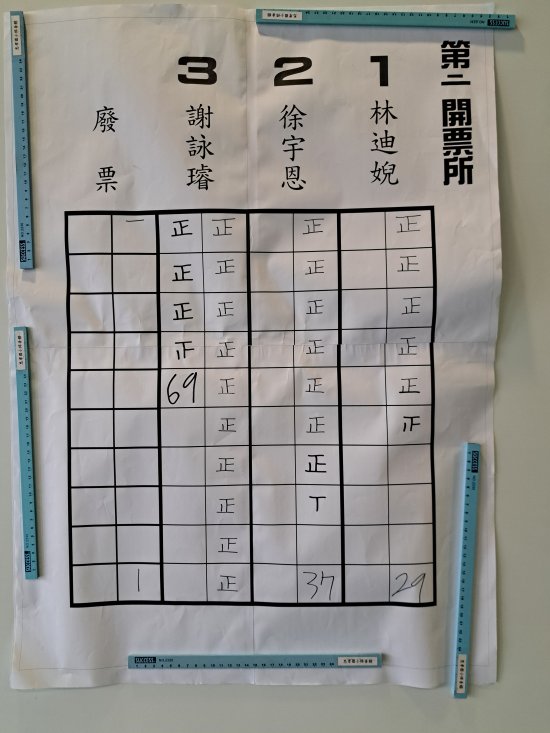 第二開票所
1 林迪婗
2 徐宇恩
3 謝詠璿
廢票
正
正
正
正
正
正
29
正
正
正
正
正
正
正
丅
37
正
正
正
正
正
正
正
正
正
正
正
正
正
正
69
一
1
SUCCESS
SUCCESS
SUCCESS
SUCCESS
SUCCESS